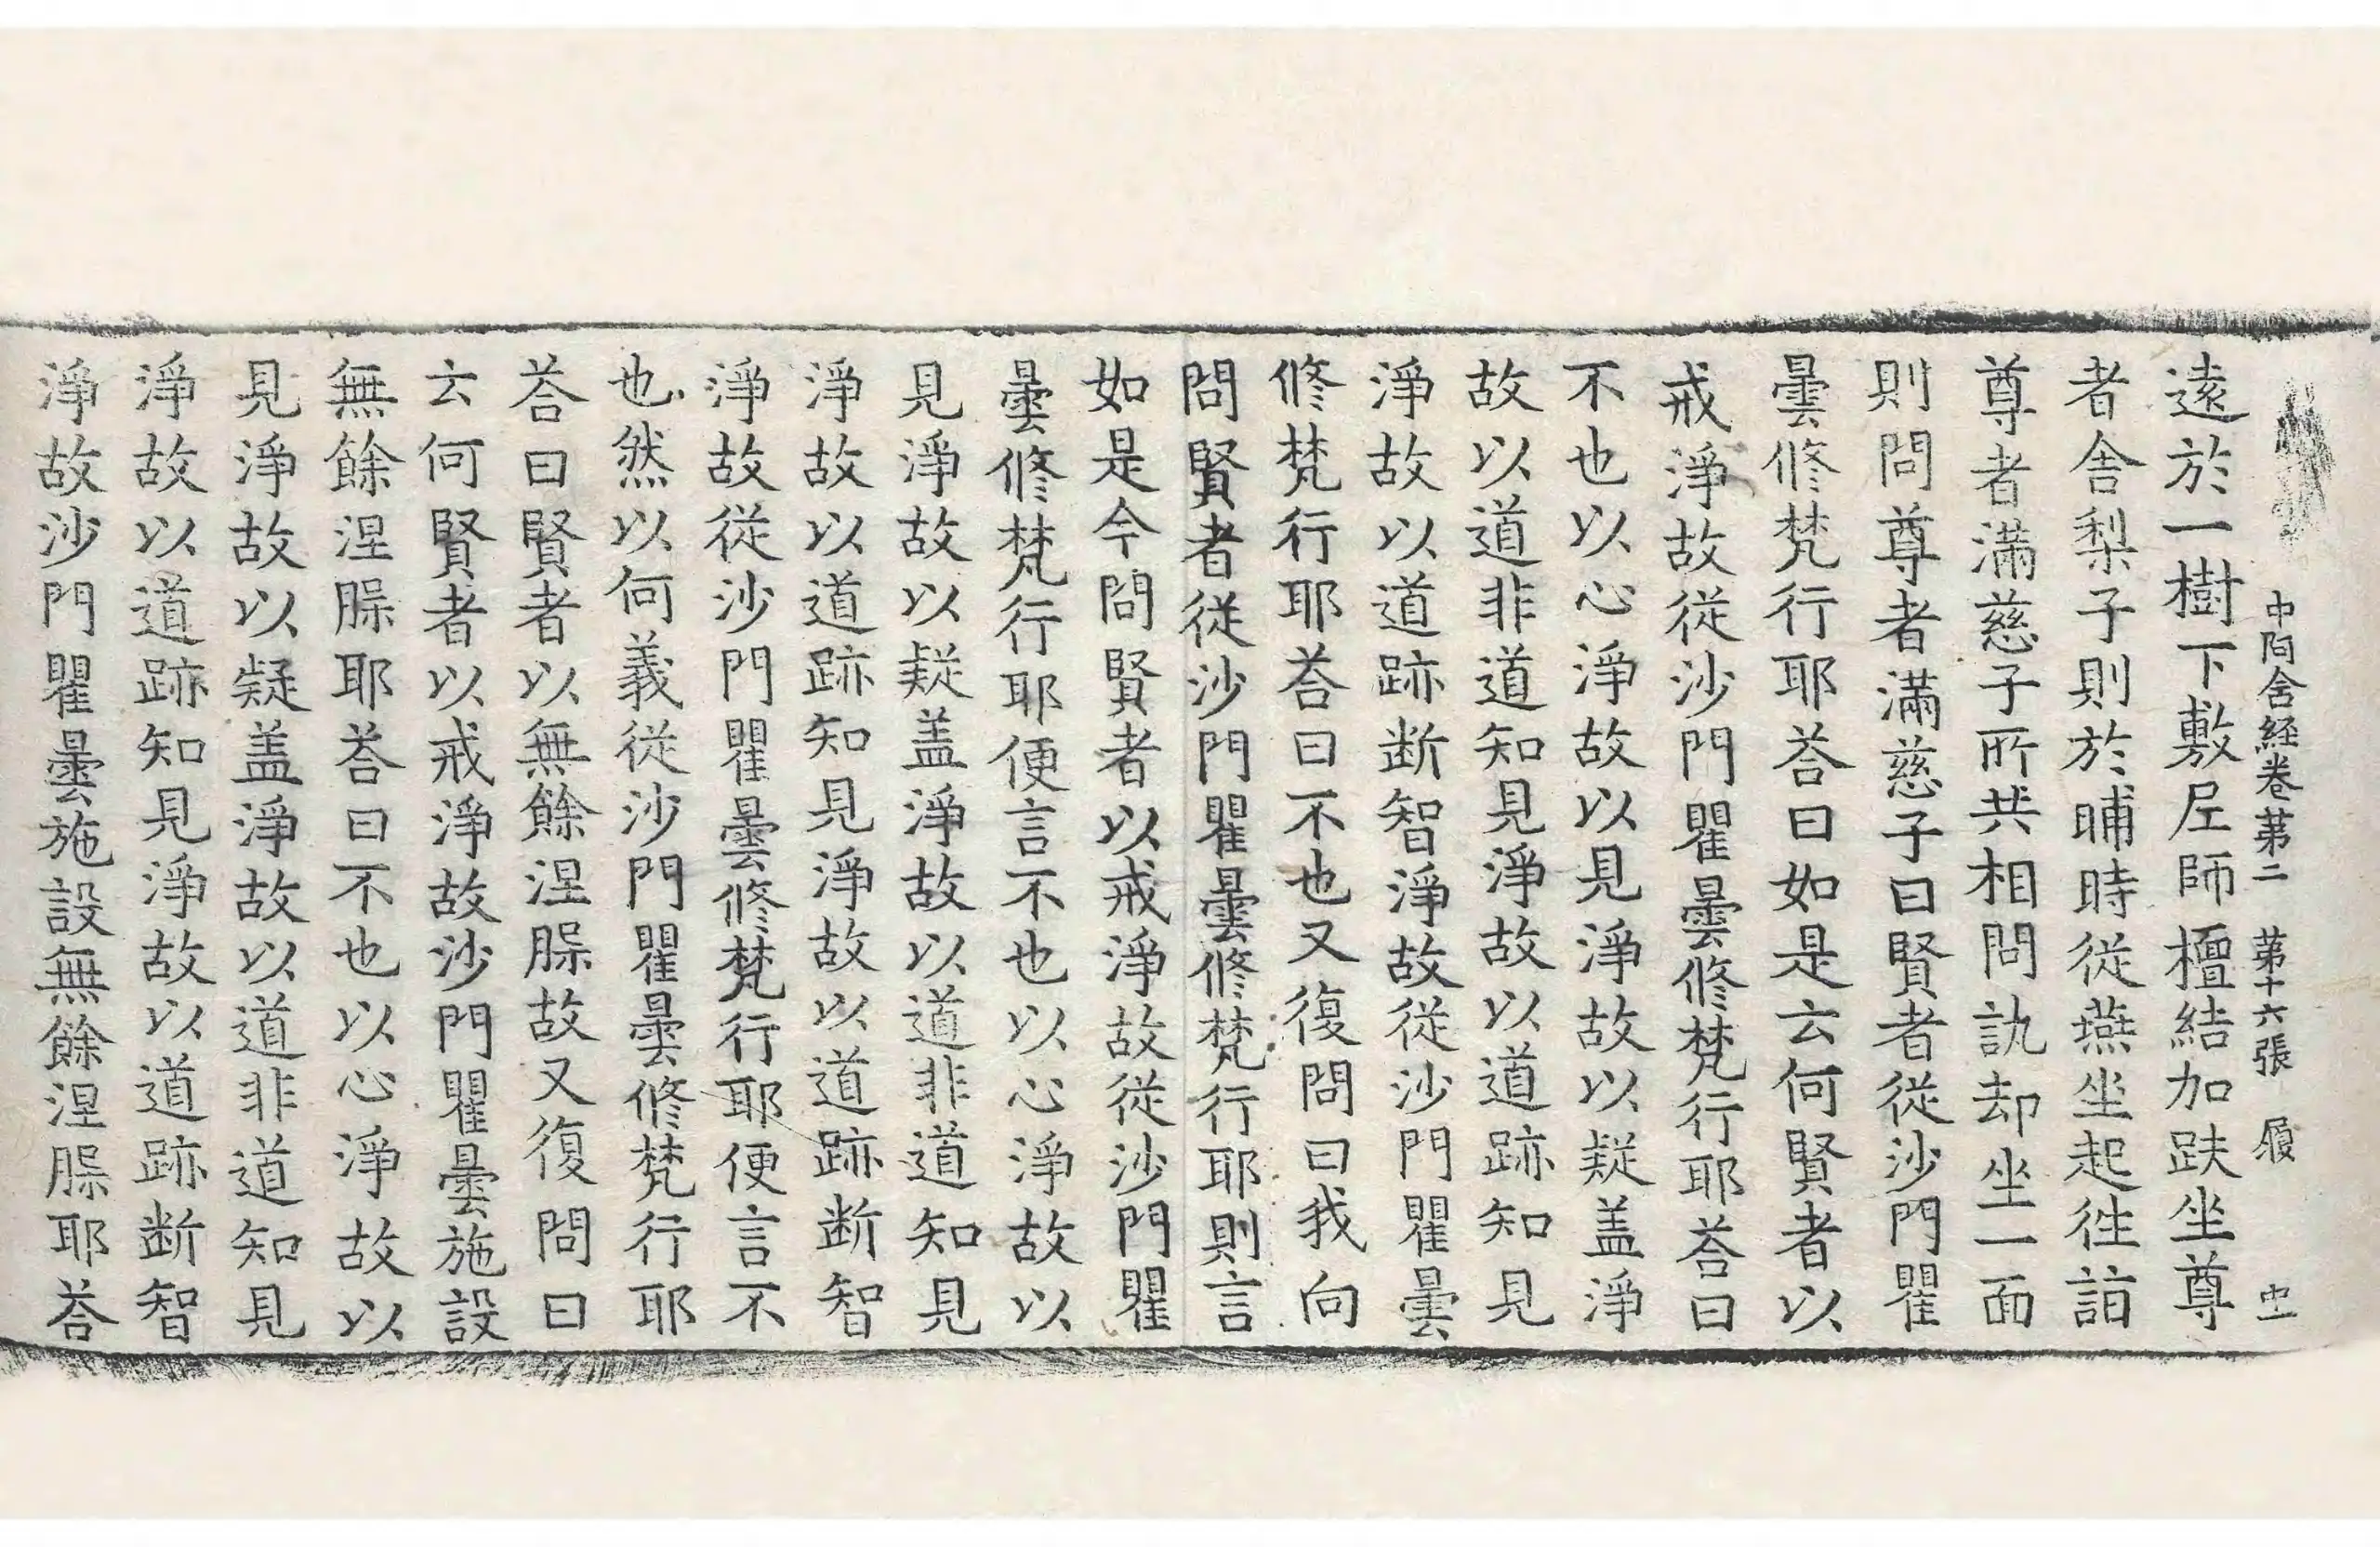 中阿含經卷第二 第十六張 履
遠於一樹下敷尼師檀結加趺坐尊
者舍梨子則於晡時從燕坐起往詣
尊者滿慈子所共相問訊却坐一面
則問尊者滿慈子曰賢者從沙門瞿
曇修梵行耶荅曰如是云何賢者以
戒淨故從沙門瞿曇修梵行耶荅曰
不也以心淨故以見淨故以疑盖淨
故以道非道知見淨故以道跡知見
淨故以道跡断智淨故從沙門瞿曇
修梵行耶荅曰不也又復問曰我向
問賢者從沙門瞿曇修梵行耶則言
如是今問賢者以戒淨故從沙門瞿
曇修梵行耶便言不也以心淨故以
見淨故以疑盖淨故以道非道知見
淨故以道跡知見淨故以道跡断智
淨故從沙門瞿曇修梵行耶便言不
也然以何義從沙門瞿曇修梵行耶
荅曰賢者以無餘涅槃故又復問曰
云何賢者以戒淨故沙門瞿曇施設
無餘涅槃耶荅曰不也以心淨故以
見淨故以疑盖淨故以道非道知見
淨故以道跡知見淨故以道跡断智
淨故沙門瞿曇施設無餘涅槃耶荅